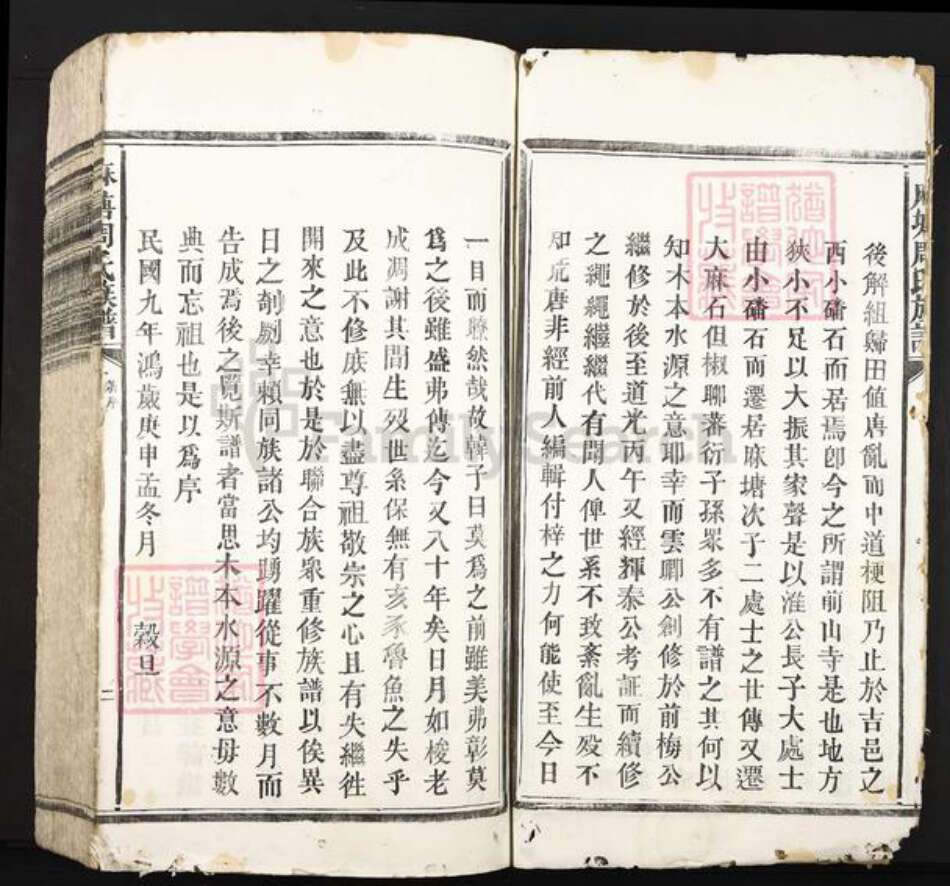 麻塘周氏族譜
後解組歸田值唐亂而中道梗阻乃止於吉邑之
西小磻石而居焉卽今之所謂前山寺是也地方
狹小不足以大振其家聲是以淮公長子大處士
由小磻石而遷居麻塘次子二處士之廿傳又遷
大麻石但椒聊蕃衍子孫眾多不有譜之其何以
知木本水源之意耶幸而雲卿公創修於前梅公
繼修於後至道光丙午又經輝泰公考証而續修
之繩繩繼繼代有聞人俾世系不致紊亂生殁不
知荒唐非經前人編輯付梓之力何能使至今日
一目而瞭然哉故韓子曰莫爲之前雖美弗彰莫
爲之後雖盛弗傳迄今又八十年矣日月如梭老
成凋謝其間生殁世系保無有亥豕魯魚之失乎
及此不修底無以盡尊祖敬宗之心且有失繼徃
開來之意也於是於聯合族眾重修族譜以俟異
日之剞劂幸賴同族諸公均踴躍從事不數月而
告成焉後之覽斯譜者當思木本水源之意毋數
典而忘祖也是以爲序
民國九年鴻歲庚申孟冬月 榖旦
麻塘周氏族譜
二
FamilySearch